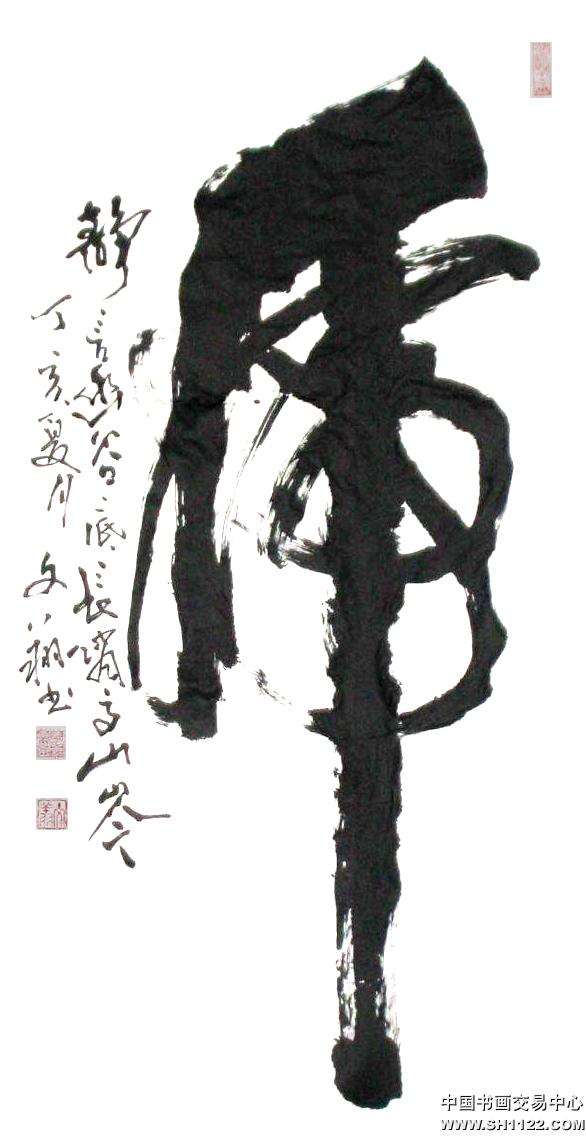 虎
静言幽谷底長嘯高山岑
丁亥夏月 文翔书
中国书画交易中心
WWW.SH1122.COM